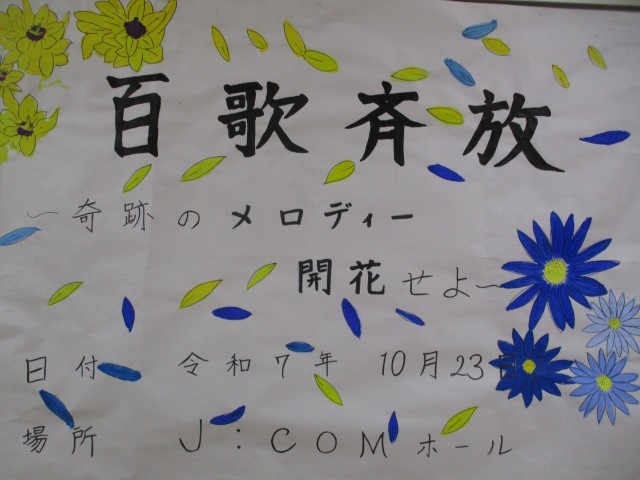 百歌斉放
～奇跡のメロディー
開花せよ～
日付 令和7年 10月23日
場所 J:COMホール